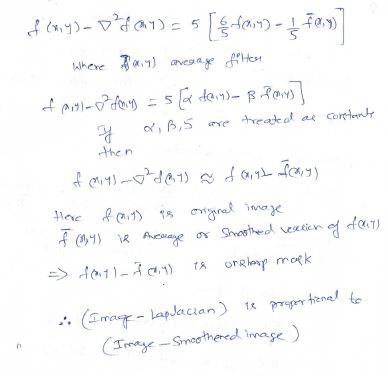 f(x,y) - ∇²f(x,y) = 5 [6/5 f(x,y) - 1/5 f̄(x,y)]
where f̄(x,y) average filter
f(x,y) - ∇²f(x,y) = 5 [α f(x,y) - β f̄(x,y)]
If α, β, 5 are treated as constants
then
f(x,y) - ∇²f(x,y) ≈ f(x,y) - f̄(x,y)
Here f(x,y) is original image
f̄(x,y) is Average or Smoothed version of f(x,y)
⇒ f(x,y) - f̄(x,y) is mask
∴ (Image - Laplacian) is proportional to
(Image - Smoothered image)